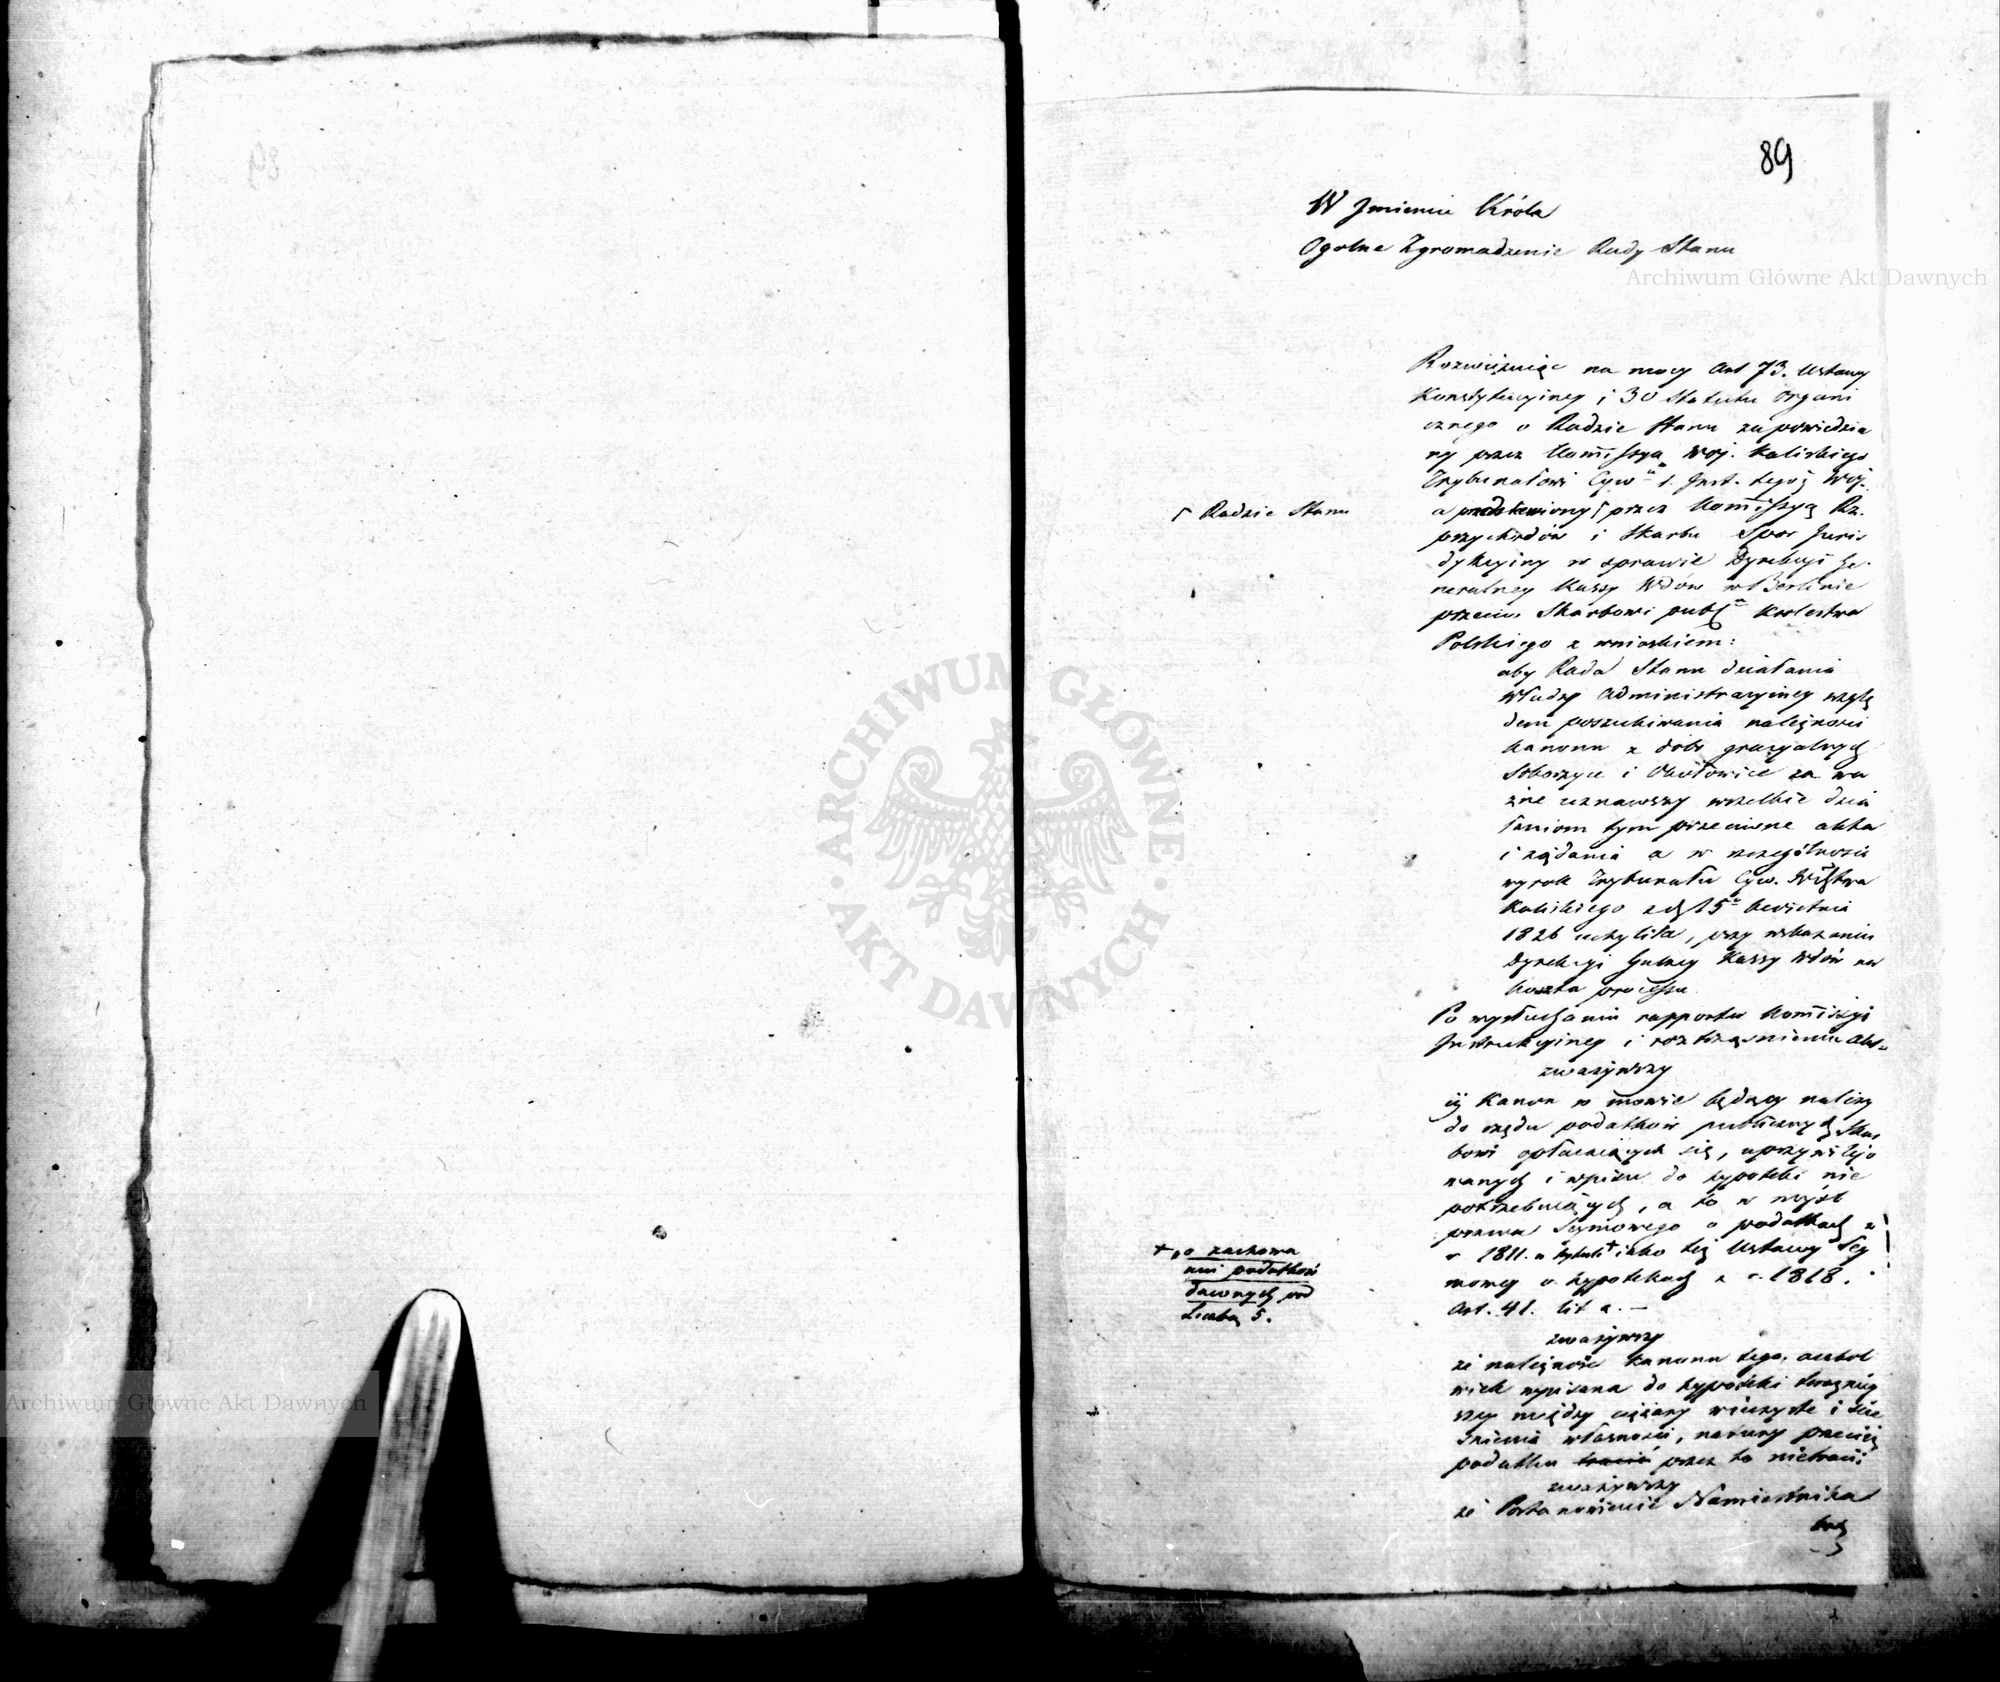 89
W Jmieniu Króla
Ogolne Zgromadzenie Rady Stanu
Rozwiązuiąc na mocy Art 73. Ustawy
Konstytucyiney i 30 Statutu Organi
cznego o Radzie Stanu zapowiedzia
ny przez Kom̅issyą Woj. Kaliskiego
Trybunałowi Cyw. 1. Inst. tegoż Woj.
a przedstawiony ſ przez Kom̅issyą Rz.
ſ Radzie Stanu
przychodów i Skarbu Spór Juris
dykcyiny w sprawie Dyrekcyi Je-
neralney Kassy Wdów w Berlinie
przeciw Skarbowi publ. Królestwa
Polskiego z wnioskiem:
aby Rada Stanu działania
Władzy Administracyiney wzglę
dem poszukiwania należności
kanonu z dóbr gracyalnych
Soborzyce i za wa
żne uznawszy wszelkie dzia
łaniom tym przeciwne akta
i żądania a w szczególności
wyrok Trybunału Cyw. Wdztwa
Kaliskiego z d. 15 Kwietnia
1826 uchyliła, przy wskazaniu
Dyrekcyi Gnlney Kassy Wdów na
koszta processu.
Po wysłuchaniu rapportu Kom̅issyi
Instrukcyiney i roztrząśnieniu Akt
zważywszy
iż Kanon w mowie będący należy
do rzędu podatków publicznych Skar
bowi opłacaiących się, uprzywilejo
wanych i wpisu do hypoteki nie
potrzebuiących, a to w myśl
prawa Seymowego o podatkach z
r 1811. w tytule + iako też Ustawy Sey
+ „o zachowa
niu podatków
dawnych pod
Liczbą 5.
mowey o hypotekach z r. 1818.
Art. 41. lit a. —
zważywszy
że należność kanonu tego, aczkol
wiek wpisana do hypoteki
między ciężary wieczyste i ście
śnienia własności, natury przecież
podatku traci przez to nietraci;
zważywszy
że Postanowienie Namiestnika